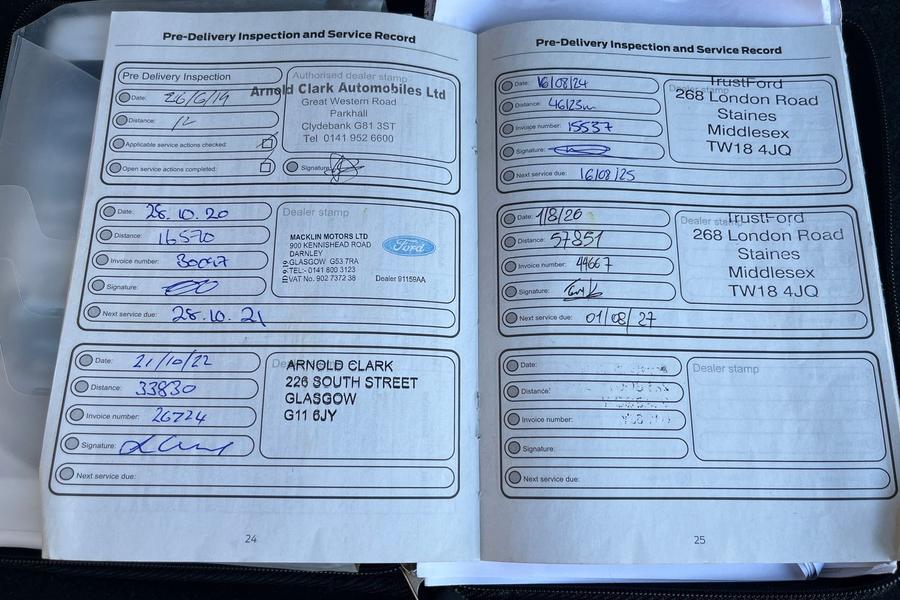 Pre-Delivery Inspection and Service Record
Pre Delivery Inspection
Date: 26/6/19
Distance: 12
Applicable service actions checked:
Open service actions completed:
Authorised dealer stamp
Arnold Clark Automobiles Ltd
Great Western Road
Parkhall
Clydebank G81 3ST
Tel 0141 952 6600
Signature:
Date: 28.10.20
Distance: 16570
Invoice number:
Signature:
Next service due: 28.10.21
Dealer stamp
MACKLIN MOTORS LTD
900 KENNISHEAD ROAD
DARNLEY
GLASGOW G53 7RA
TEL:- 0141 800 3123
VAT No. 902 7372 38
Ford
Dealer 91159AA
Date: 21/10/22
Distance: 33830
Invoice number: 26724
Signature:
Next service due:
ARNOLD CLARK
226 SOUTH STREET
GLASGOW
G11 6JY
24
Pre-Delivery Inspection and Service Record
Date: 16/08/24
Distance: 46123m
Invoice number: 15537
Signature:
Next service due: 16/08/25
TrustFord
268 London Road
Staines
Middlesex
TW18 4JQ
Date: 1/8/26
Distance: 57851
Invoice number: 44667
Signature:
Next service due: 01/08/27
Dealer stamp
TrustFord
268 London Road
Staines
Middlesex
TW18 4JQ
Date:
Distance:
Invoice number:
Signature:
Next service due:
Dealer stamp
25